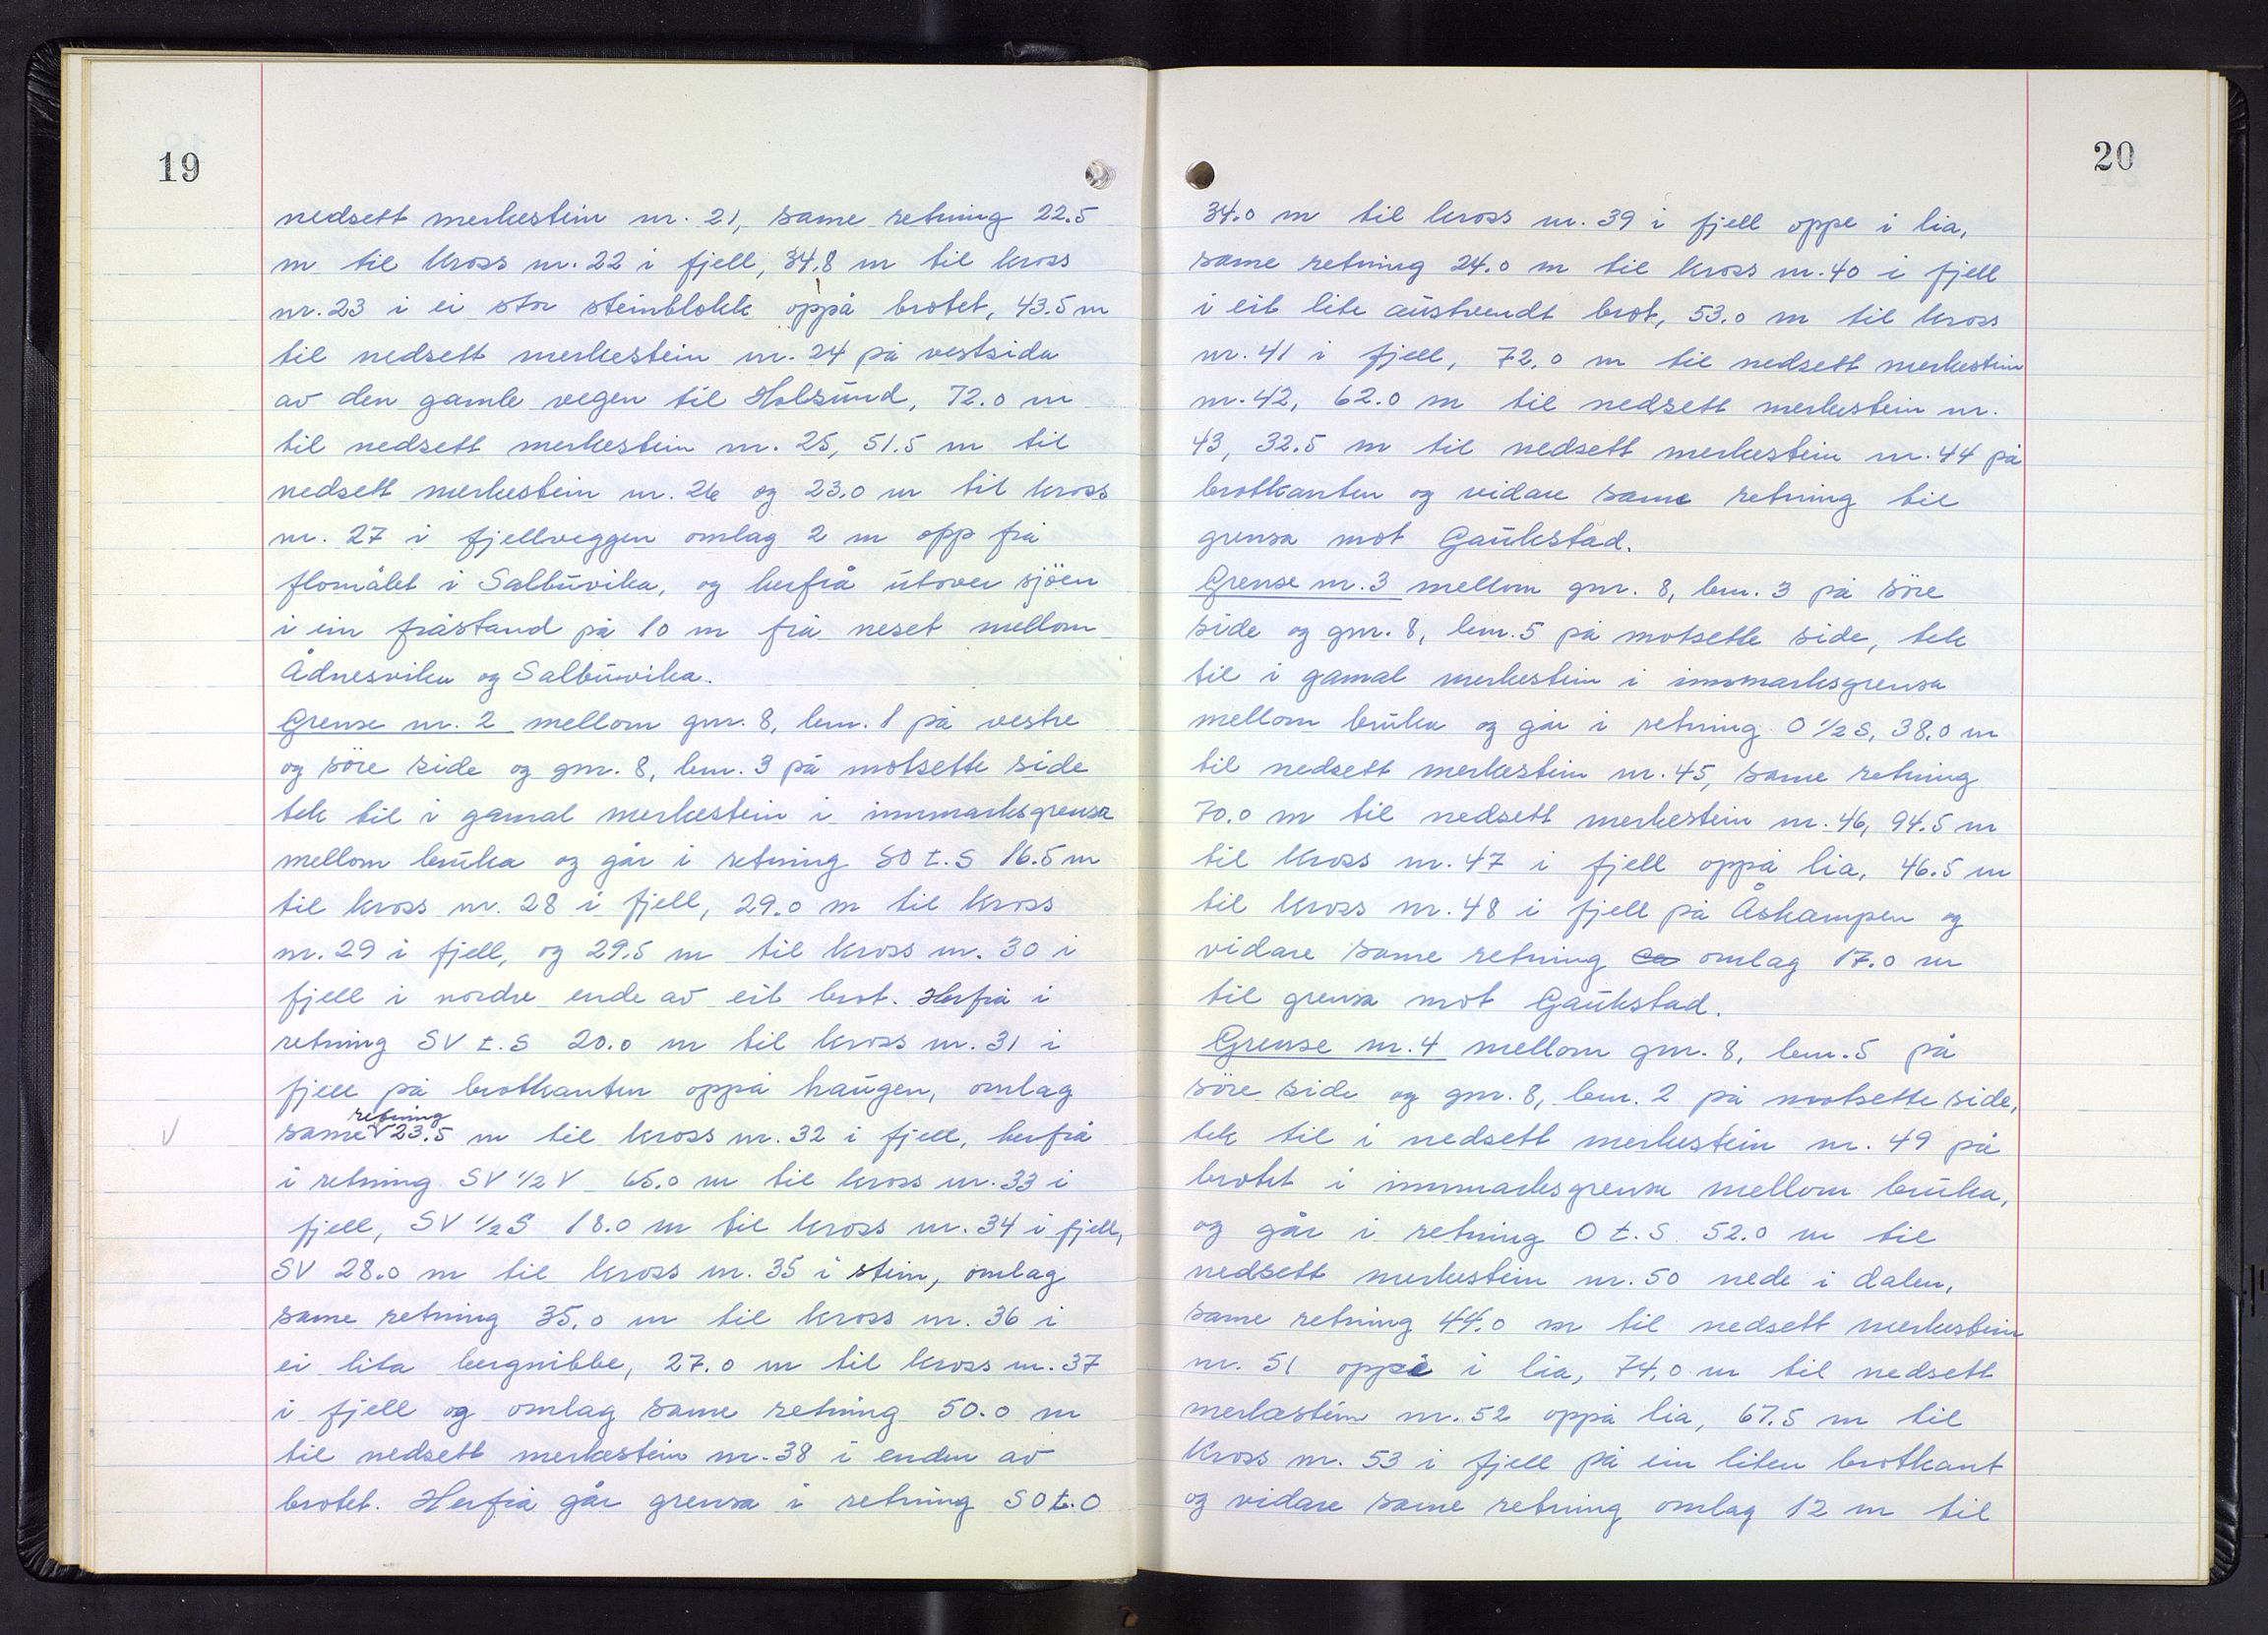 19
nedsett merkestein nr. 21, same retning 22.5
m til kross nr. 22 i fjell, 34.8 m til kross
nr. 23 i ei stor steinblokk oppå brotet, 43.5 m
til nedsett merkestein nr. 24 på vestsida
av den gamle vegen til Holsund, 72.0 m
til nedsett merkestein nr. 25, 51.5 m til
nedsett merkestein nr. 26 og 23.0 m til kross
nr. 27 i fjellveggen omlag 2 m opp frå
flomålet i Salbuvika, og herfrå utover sjöen
i ein fråstand på 10 m frå neset mellom
Ådnesvika og Salbuvika.
Grense nr. 2 mellom gnr. 8, bnr. 1 på vestre
og söre side og gnr. 8, bnr. 3 på motsette side
tek til i gamal merkestein i innmarksgrensa
mellom bruka og går i retning SO t. S 16.5 m
til kross nr. 28 i fjell, 29.0 m til kross
nr. 29 i fjell, og 29.5 m til kross nr. 30 i
fjell i nordre ende av eit brot. Herfrå i
retning SV t. S 20.0 m til kross nr. 31 i
fjell på brotkanten oppå haugen, omlag
retning
same V 23.5 m til kross nr. 32 i fjell, herfrå
i retning SV 1/2 V 65.0 m til kross nr. 33 i
fjell, SV 1/2 S 18.0 m til kross nr. 34 i fjell,
SV 28.0 m til kross nr. 35 i stein, omlag
same retning 35.0 m til kross nr. 36 i
ei lita bergnibbe, 27.0 m til kross nr. 37
i fjell og omlag same retning 50.0 m
til nedsett merkestein nr. 38 i enden av
brotet. Herfrå går grensa i retning SO t. O
20
34.0 m til kross nr. 39 i fjell oppe i lia,
same retning 24.0 m til kross nr. 40 i fjell
i eit lite austvendt brot, 53.0 m til kross
nr. 41 i fjell, 72.0 m til nedsett merkestein
nr. 42, 62.0 m til nedsett merkestein nr.
43, 32.5 m til nedsett merkestein nr. 44 på
brotkanten og vidare same retning til
grensa mot Gaukstad.
Grense nr. 3 mellom gnr. 8, bnr. 3 på söre
side og gnr. 8, bnr. 5 på motsette side, tek
til i gamal merkestein i innmarksgrensa
mellom bruka og går i retning O 1/2 S, 38.0 m
til nedsett merkestein nr. 45, same retning
70.0 m til nedsett merkestein nr. 46, 94.5 m
til kross nr. 47 i fjell oppå lia, 46.5 m
til kross nr. 48 i fjell på Åskampen og
vidare same retning ca omlag 17.0 m
til grensa mot Gaukstad.
Grense nr. 4 mellom gnr. 8, bnr. 5 på
söre side og gnr. 8, bnr. 2 på motsette side,
tek til i nedsett merkestein nr. 49 på
brotet i innmarksgrensa mellom bruka,
og går i retning O t. S 52.0 m til
nedsett merkestein nr. 50 nede i dalen,
same retning 44.0 m til nedsett merkestein
nr. 51 oppe i lia, 74.0 m til nedsett
merkestein nr. 52 oppå lia, 67.5 m til
kross nr. 53 i fjell på ein liten brotkant
og vidare same retning omlag 12 m til